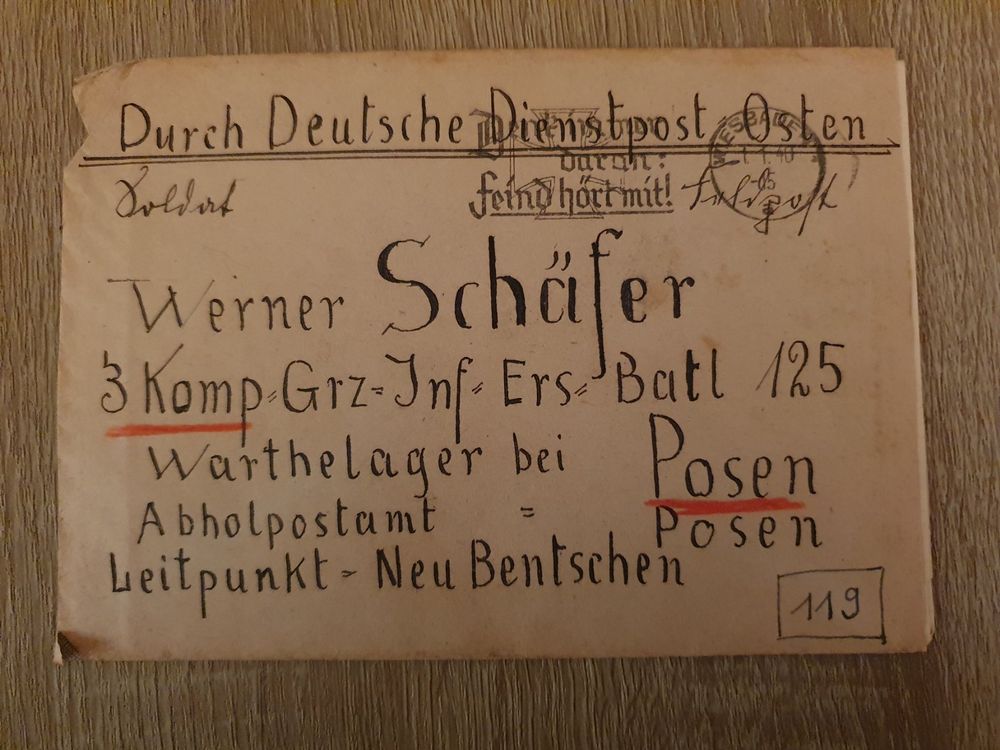 Durch Deutsche Dienstpost Osten
WIESBADEN
daran:
Soldat
feind hört mit! Feldpost
Werner Schäfer
3 Komp=Grz=Inf=Ers=Batl 125
Warthelager bei Posen
Abholpostamt = Posen
Leitpunkt = Neu Bentschen
119